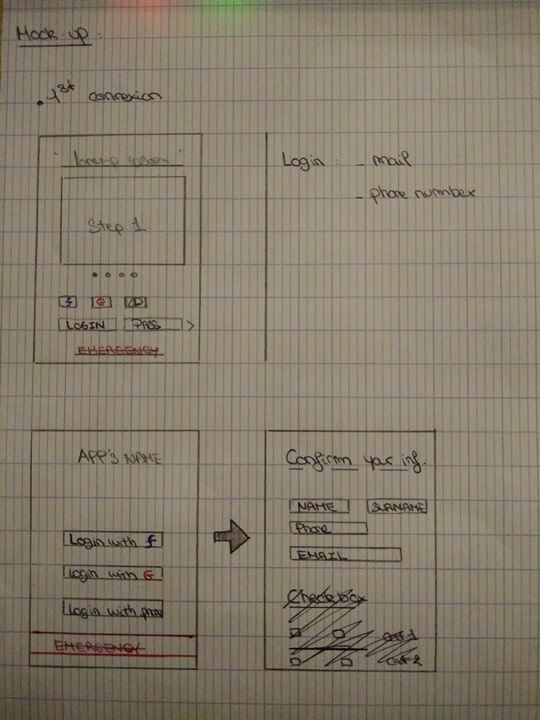 Mock up :
. 1st connexion
" Lorem ipsum "
Step 1
f G
LOGIN PASS >
EMERGENCY
Login : - mail
- phone number
APP'S NAME
Login with f
Login with G
Login with phone
EMERGENCY
Confirm your inf.
NAME SURNAME
Phone
EMAIL
Checkbox
cat 1
cat 2